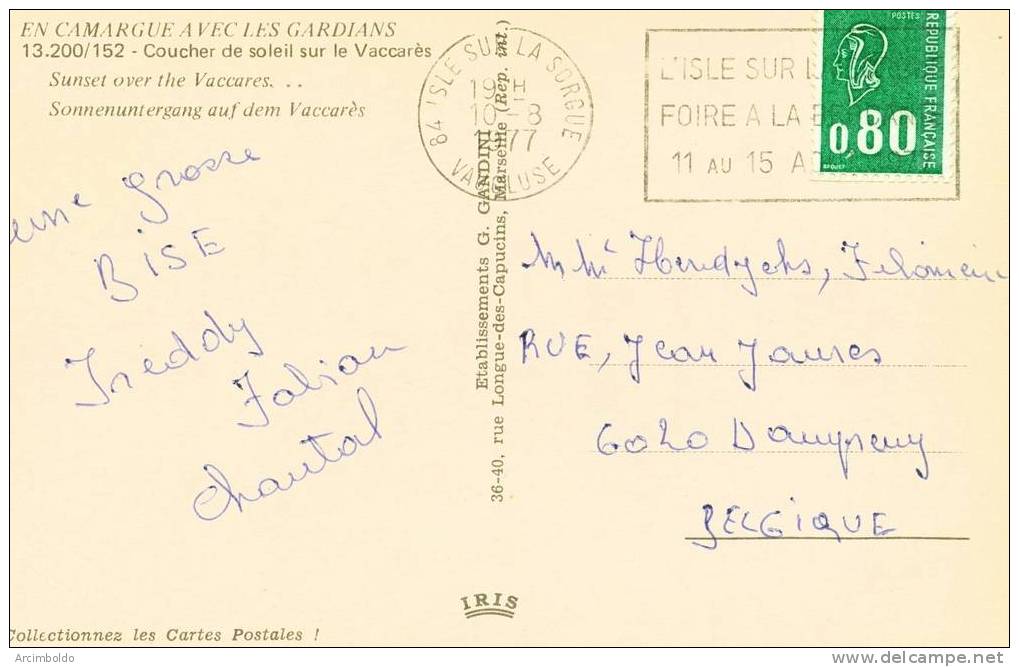 EN CAMARGUE AVEC LES GARDIANS
13.200/152 - Coucher de soleil sur le Vaccarès
Sunset over the Vaccares. . .
Sonnenuntergang auf dem Vaccarès
grosse
BISE
Freddy
Fabian
Chantal
84 ISLE SUR LA SORGUE
19H
10-8
1977
VAUCLUSE
L'ISLE SUR L
FOIRE A LA B
11 AU 15 A
POSTES
REPUBLIQUE FRANÇAISE
0,80
Etablissements G. GANDINI
36-40, rue Longue-des-Capucins, Marseille (Rep. int.)
RUE, Jean Jaures
6020 Dampremy
BELGIQUE
IRIS
Collectionnez les Cartes Postales !
Arcimboldo
www.delcampe.net